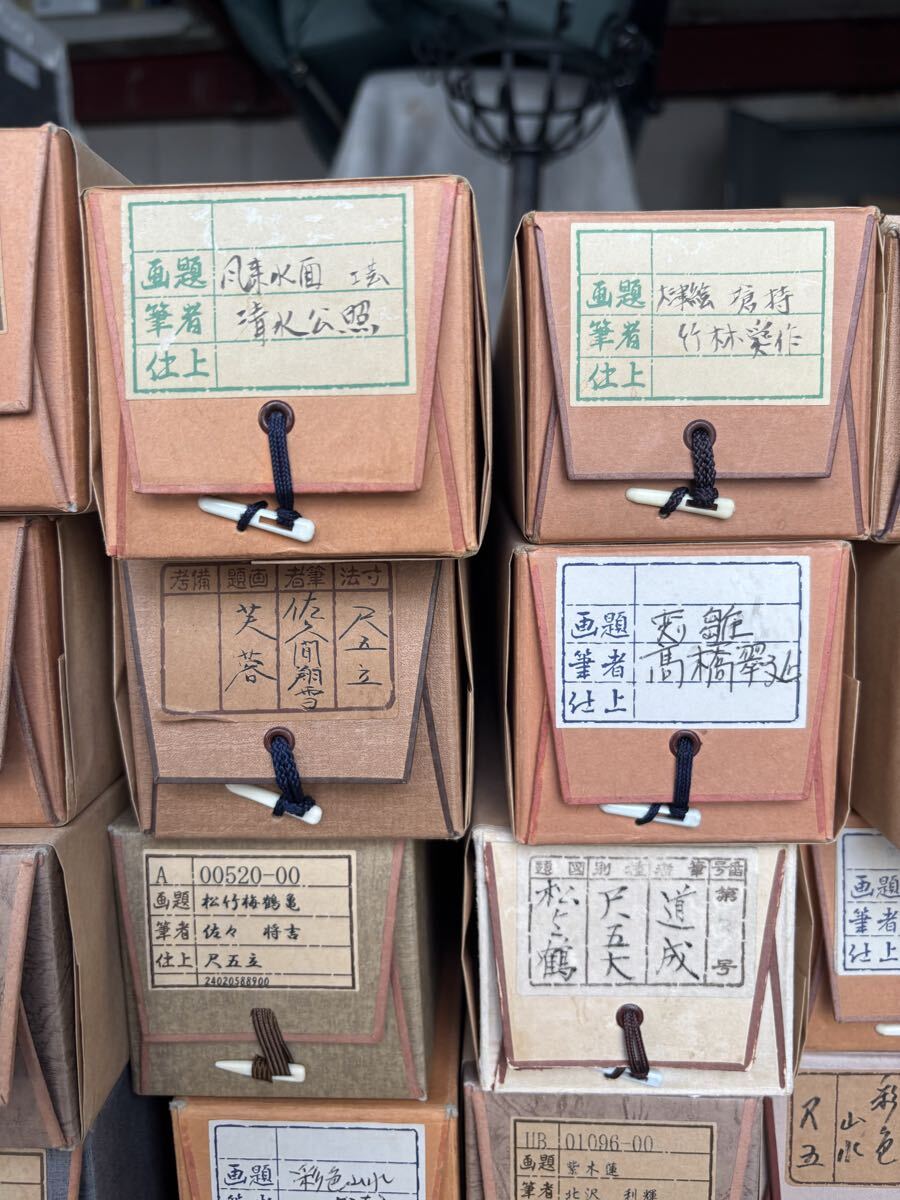 画題 風来水面 工芸
筆者 清水公照
仕上
画題 大津絵 槍持
筆者 竹林斎作
仕上
寸法 尺五立
筆者 佐久間翔雪
画題 芙蓉
備考
画題 彩雛
筆者 高橋翠
仕上
A 00520-00
画題 松竹梅鶴亀
筆者 佐々 将吉
仕上 尺五立
24020588900
第 号
道成
尺五大
松に鶴
画題
筆者
仕上
画題 彩色山水
HB 01096-00
画題 紫木蓮
筆者 北沢 利輝
彩色
山水
尺五